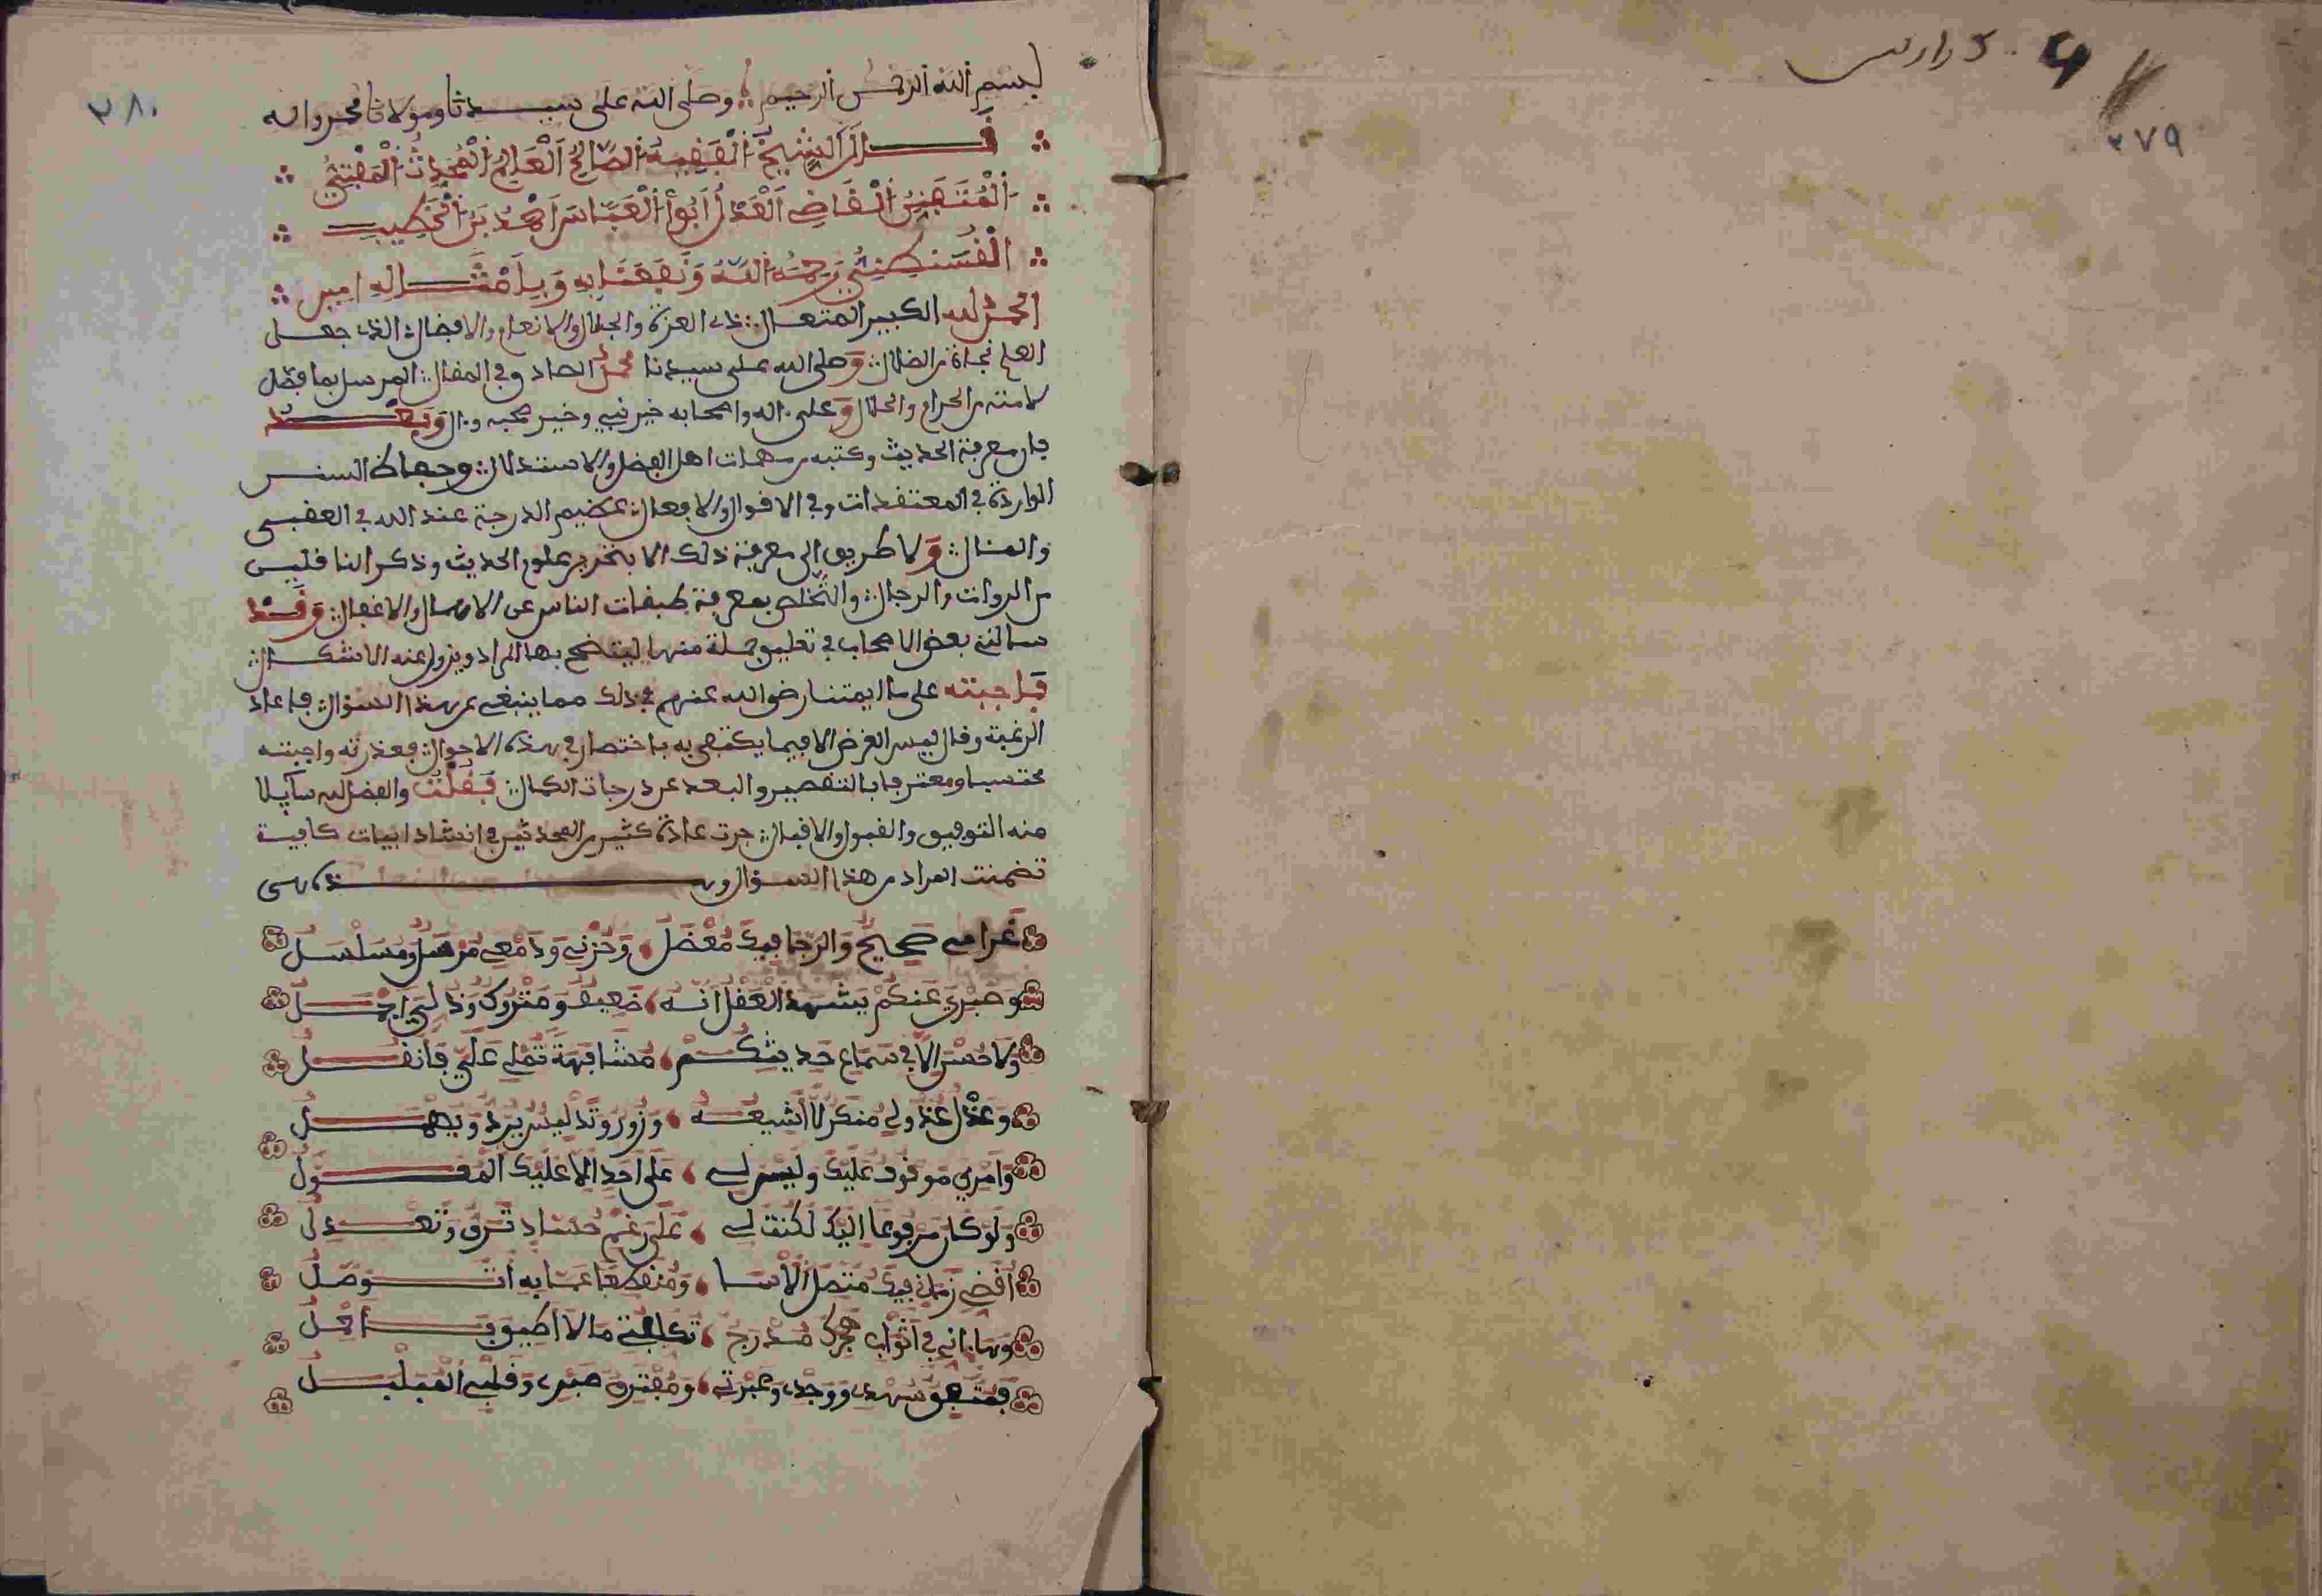 ٥ ڪراريس
٣٧٩
٣٨٠
بسم الله الرحمن الرحيم وصلى الله على سيدنا ومولانا محمد وءاله
قال الشيخ الفقيه الصالح العالم المحدث المفتي
المتفنن القاضي العدل أبو العباس احمد بن الخطيب
القسنطيني رحمه الله ونفعنا به وبأمثاله امين
الحمد لله الكبير المتعال ذي العزة والجلال والانعام والافضال الذي جعل
العلم نجاة من الضلال وصلى الله على سيدنا محمد الصادق في المقال المرسل بما فصل
لامته من الحرام والحلال وعلى ءاله واصحابه خير نبي وخير صحبه وءال وبعد
فان معرفة الحديث وكتبه من مهمات اهل الفضل والاستدلال وجهابذة السنن
الواردة في المعتقدات وفي الاقوال والافعال عظيم الدرجة عند الله في العقبى
والمئال ولا طريق الى معرفة ذلك الا بتحرير علوم الحديث وذكر الناقلين
من الروات والرجال والتخلص بمعرفة طبقات الناس عن الارسال والاغفال وقد
سالني بعض الاصحاب في تعليق جملة منها ليتضح بها المراد ويزول عنه الاشكال
فاجبته على ما لايمتنا رضي الله عنهم في ذلك مما ينبغي عن هذا السؤال فاعاد
الرغبة وقال ليس الغرض الا فيما يكتفى به باختصار في هذه الاحوال فعذرته واجبته
محتسبا ومعترفا بالتقصير والبعد عن درجات الكمال فقلت والفضل لله سآيلا
منه التوفيق والقبول والاقبال جرت عادة كثير من المحدثين في انشاد ابيات كافية
تضمنت المراد من هذا السؤال وهذه هي
غرامي صحيح والرجا فيك معضل وحزني ودمعي مرسل ومسلسل
وصبري عنكم يشهد العقل انه ضعيف ومتروك وذلي اجمل
ولا حسن الا في سماع حديثكم مشافهة تملى علي فانقل
وعذل عذولي منكر لا اشيعه وزور وتدليس يرد ويهمل
وامري موقوف عليك وليس لي على احد الا عليك المعول
ولو كان مرفوعا اليك لكنت لي على رغم حسادي ترق وتعدل
اقضي زماني فيك متصل الاسا ومنقطعا عما به اتوصل
وها انا في اثواب هجرك مدرج تكلفني ما لا اطيق فاحمل
فمتفق سهدي ووجدي وعبرتي ومفترق صبري وقلبي المبلبل